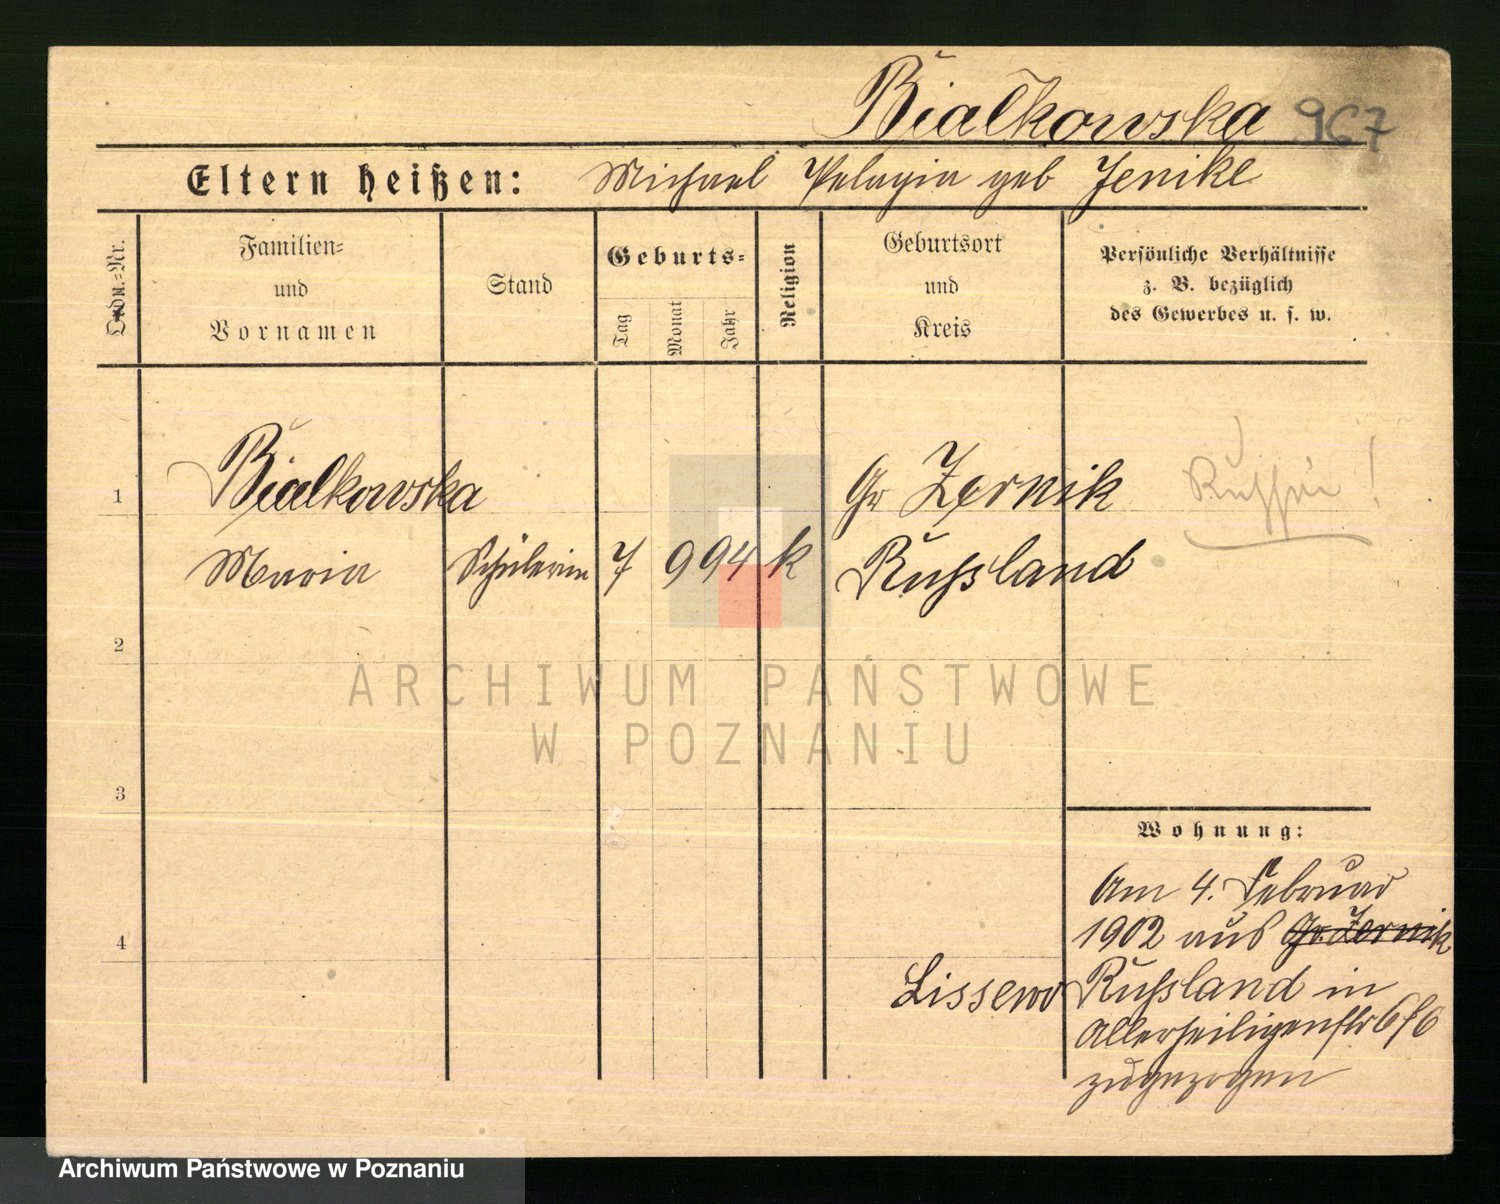 Białkowska 967
Eltern heißen: Michael Pelagia geb Jenike
Ordn.-Nr.
Familien-
und
Vornamen
Stand
Geburts-
Tag
Monat
Jahr
Religion
Geburtsort
und
Kreis
Persönliche Verhältnisse
z. B. bezüglich
des Gewerbes u. s. w.
1 Bialkowska Gr Zernik Russin!
Maria Schülerin 7 9 94 k Russland
2
ARCHIWUM PAŃSTWOWE
W POZNANIU
3
Wohnung:
Am 4. Februar
4 1902 aus Gr. Zernik
Lissewo Russland in
Allerheiligenstr 6/6
zugezogen
Archiwum Państwowe w Poznaniu